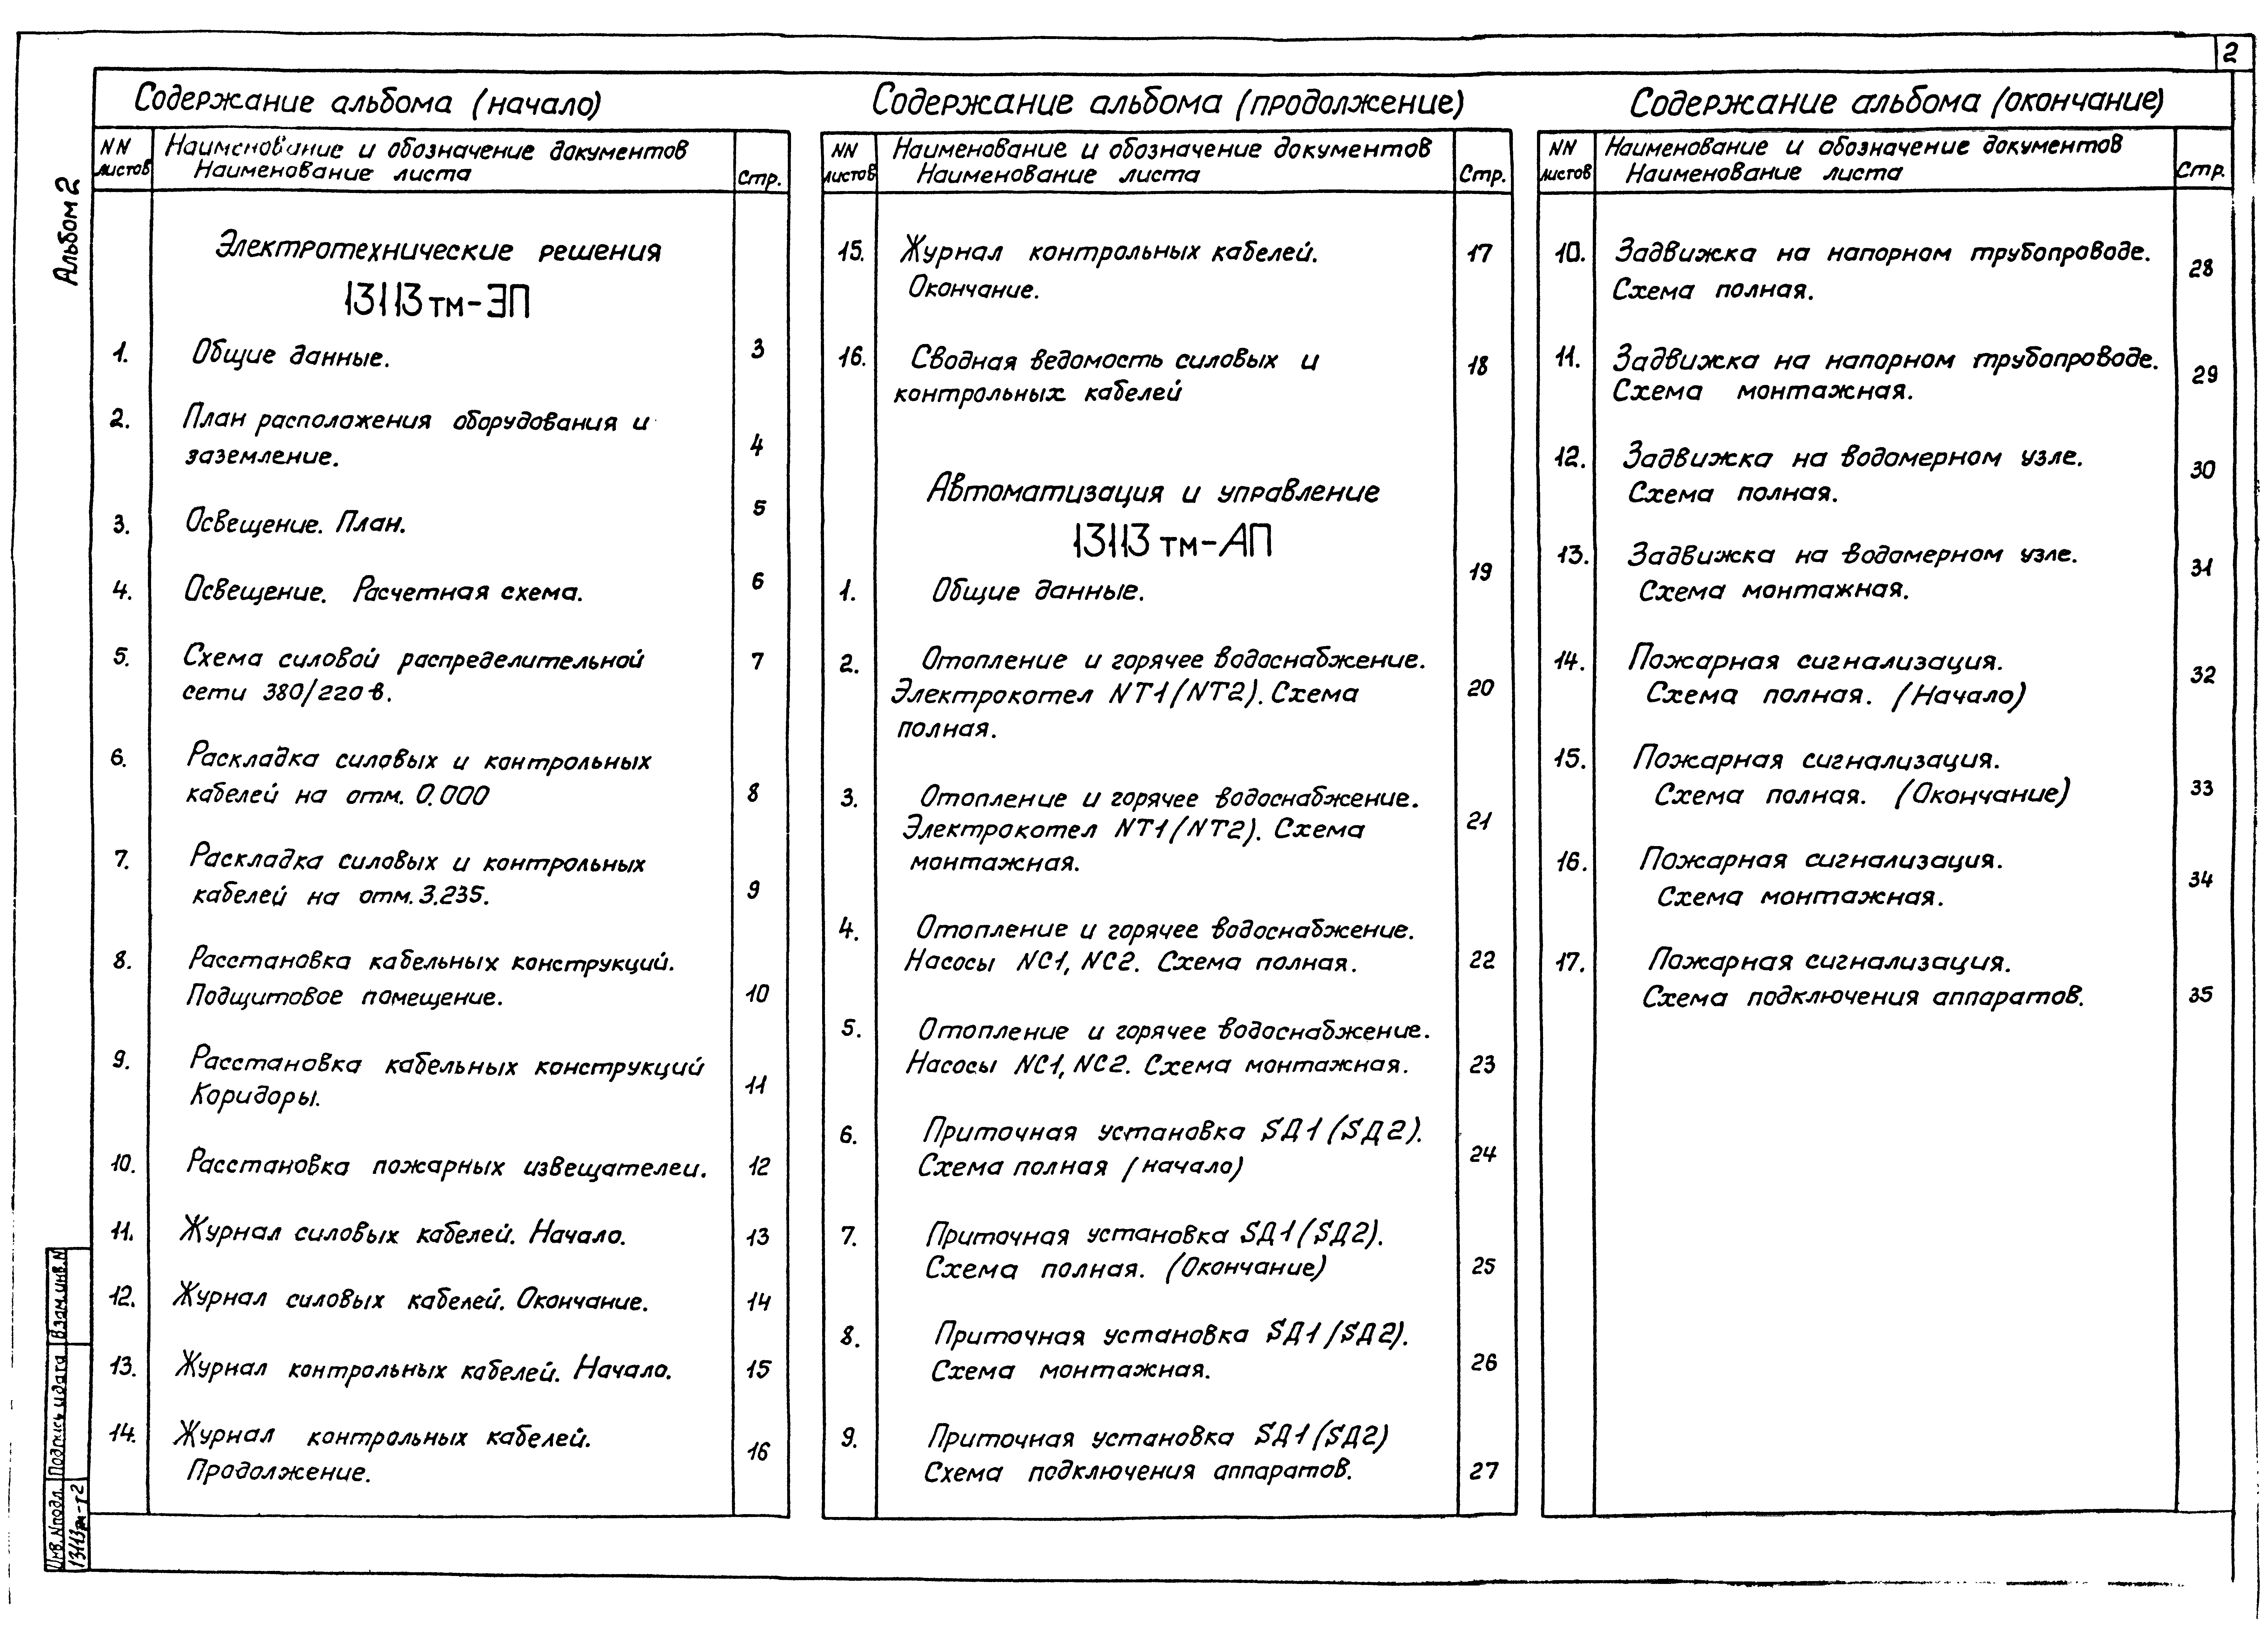 2
Альбом 2
Содержание альбома (начало)
NN листов
Наименование и обозначение документов
Наименование листа
Стр.
Электротехнические решения
13113тм-ЭП
1. Общие данные. 3
2. План расположения оборудования и
заземление. 4
3. Освещение. План. 5
4. Освещение. Расчетная схема. 6
5. Схема силовой распределительной 7
сети 380/220в.
6. Раскладка силовых и контрольных
кабелей на отм. 0.000 8
7. Раскладка силовых и контрольных
кабелей на отм. 3.235. 9
8. Расстановка кабельных конструкций.
Подщитовое помещение. 10
9. Расстановка кабельных конструкций
Коридоры. 11
10. Расстановка пожарных извещателеи. 12
11. Журнал силовых кабелей. Начало. 13
12. Журнал силовых кабелей. Окончание. 14
13. Журнал контрольных кабелей. Начало. 15
14. Журнал контрольных кабелей. 16
Продолжение.
Содержание альбома (продолжение)
NN листов
Наименование и обозначение документов
Наименование листа
Стр.
15. Журнал контрольных кабелей. 17
Окончание.
16. Сводная ведомость силовых и 18
контрольных кабелей
Автоматизация и управление
13113 тм-АП
1. Общие данные. 19
2. Отопление и горячее водоснабжение.
Электрокотел NT1(NT2). Схема 20
полная.
3. Отопление и горячее водоснабжение.
Электрокотел NT1(NT2). Схема 21
монтажная.
4. Отопление и горячее водоснабжение.
Насосы NC1, NC2. Схема полная. 22
5. Отопление и горячее водоснабжение.
Насосы NC1, NC2. Схема монтажная. 23
6. Приточная установка SД1(SД2).
Схема полная (начало) 24
7. Приточная установка SД1(SД2).
Схема полная. (Окончание) 25
8. Приточная установка SД1(SД2).
Схема монтажная. 26
9. Приточная установка SД1(SД2)
Схема подключения аппаратов. 27
Содержание альбома (окончание)
NN листов
Наименование и обозначение документов
Наименование листа
Стр.
10. Задвижка на напорном трубопроводе. 28
Схема полная.
11. Задвижка на напорном трубопроводе. 29
Схема монтажная.
12. Задвижка на водомерном узле. 30
Схема полная.
13. Задвижка на водомерном узле. 31
Схема монтажная.
14. Пожарная сигнализация. 32
Схема полная. (Начало)
15. Пожарная сигнализация.
Схема полная. (Окончание) 33
16. Пожарная сигнализация. 34
Схема монтажная.
17. Пожарная сигнализация.
Схема подключения аппаратов. 35
Взам.инв.N
Подпись и дата
Инв.Nподл.
13113тм-т2